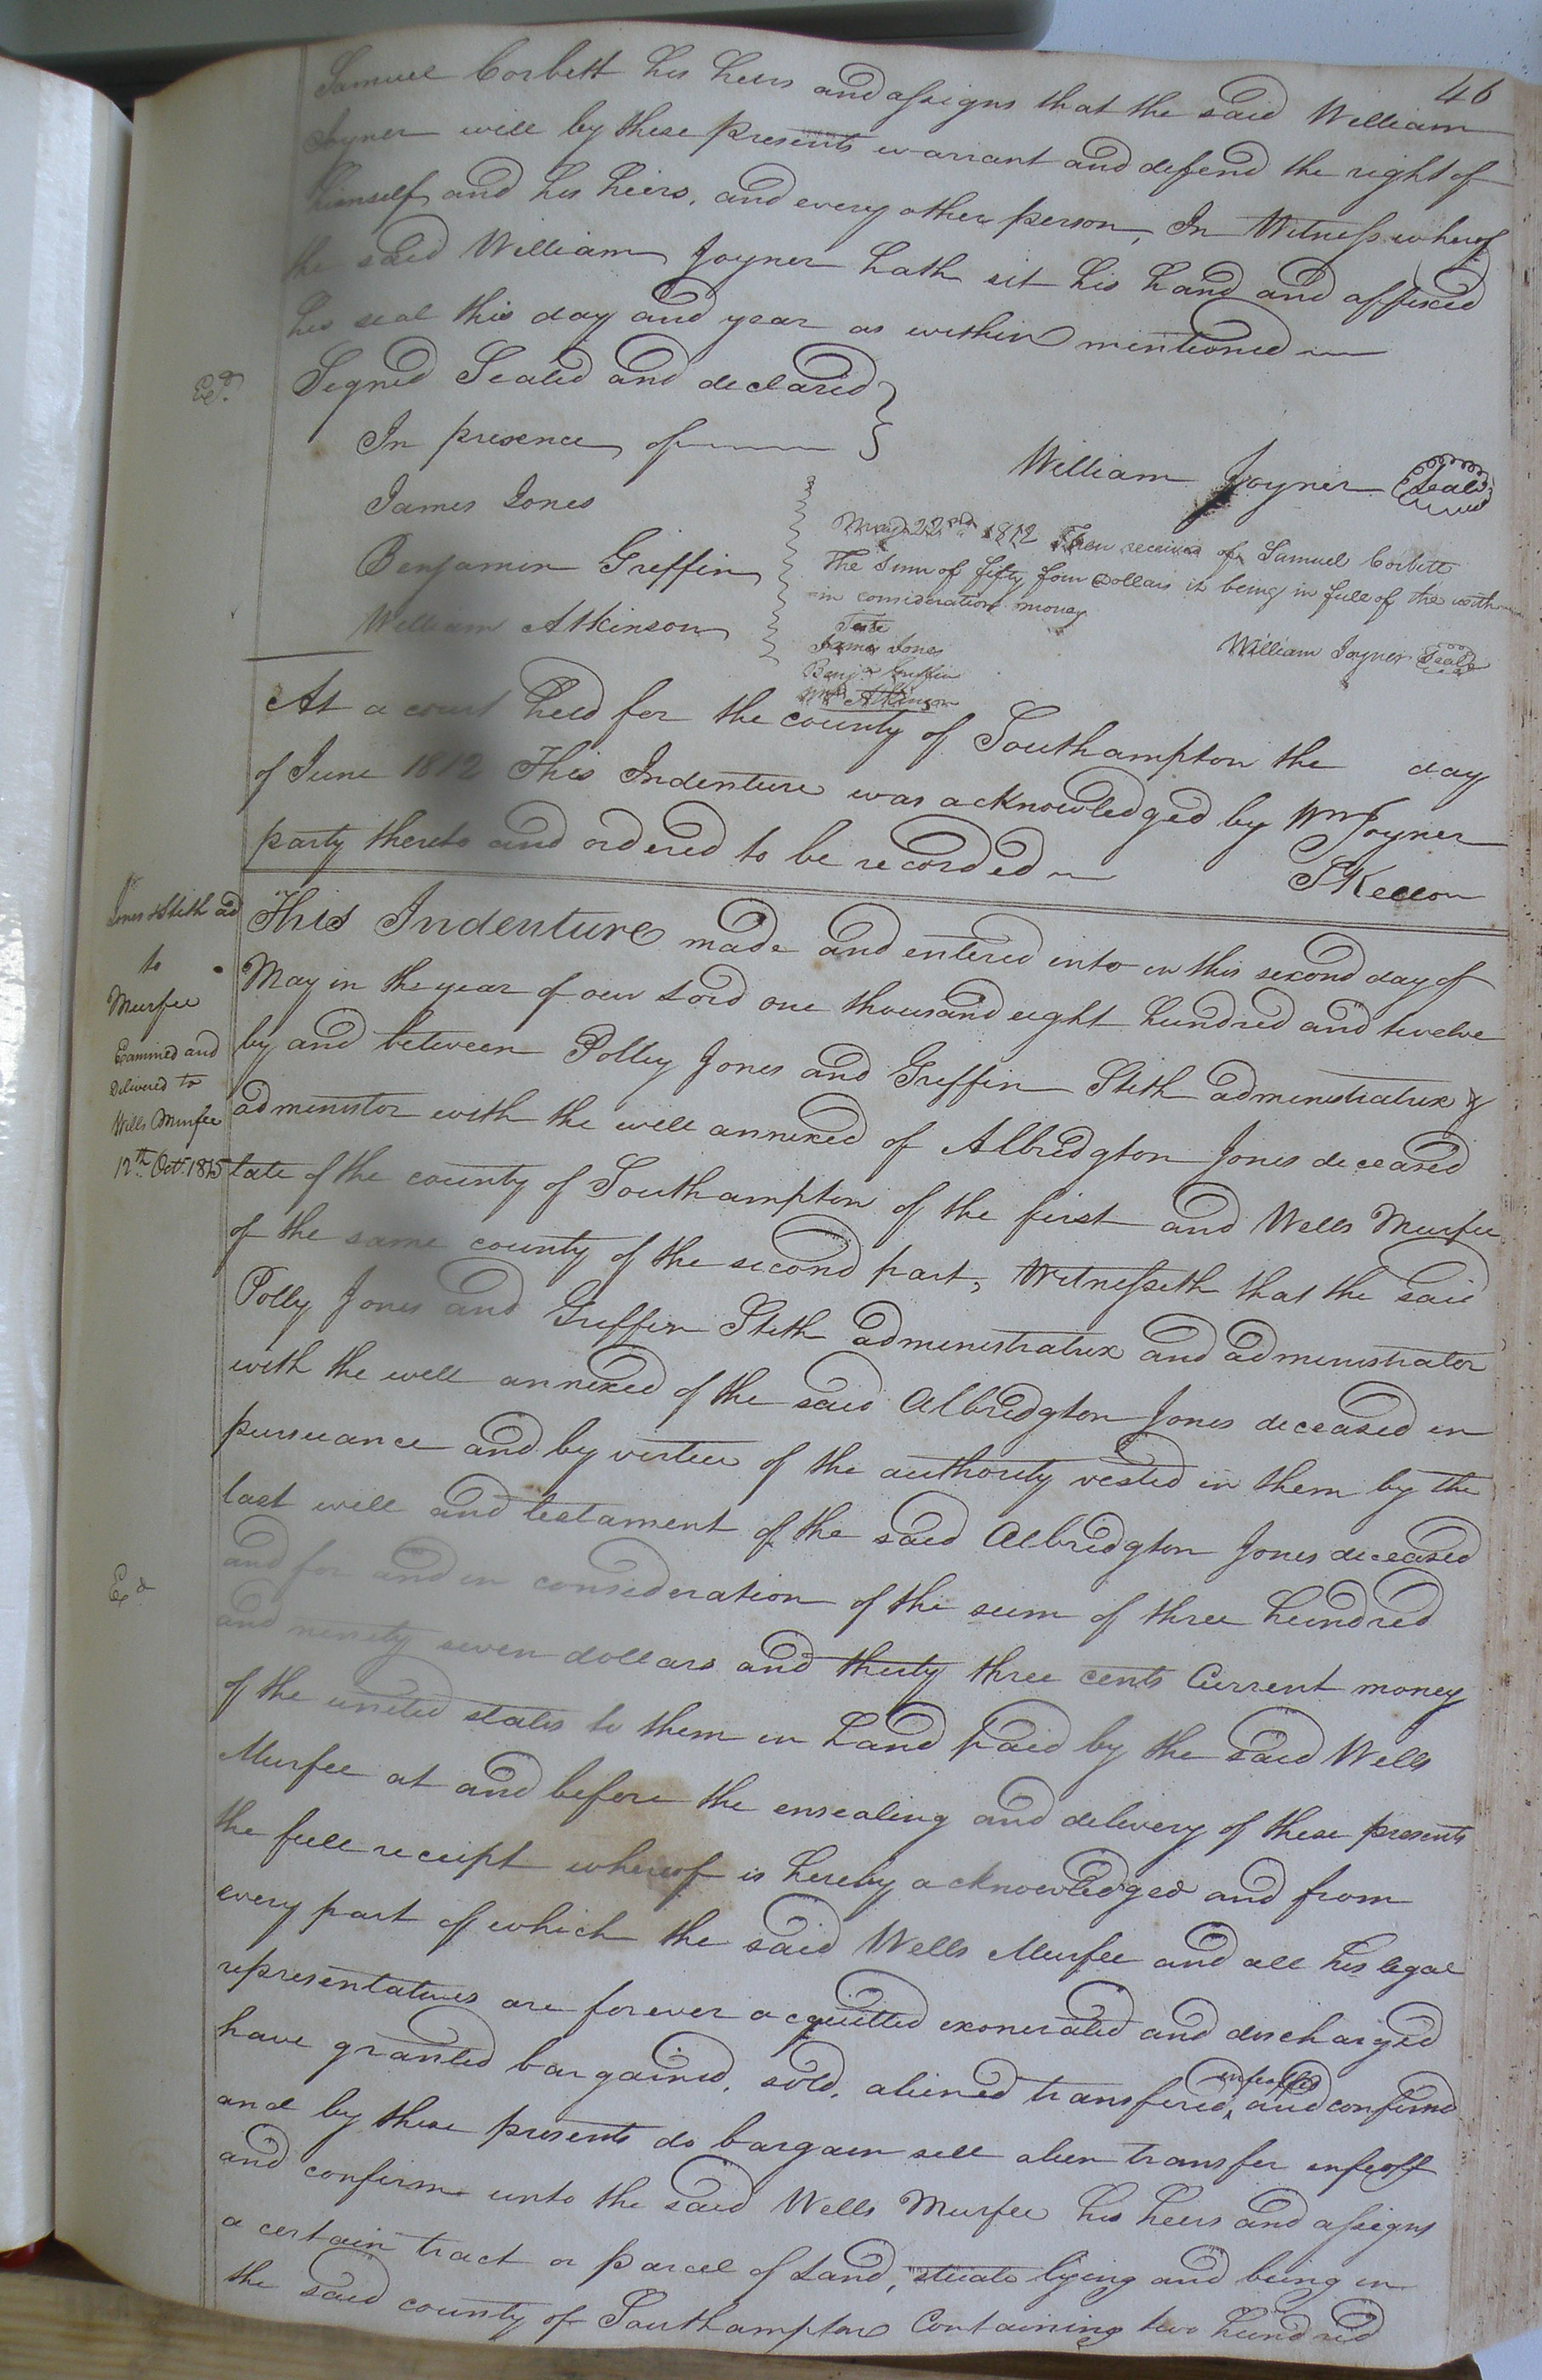 46
Samuel Corbett his heirs and assigns that the said William
Joyner will by these presents warrant and defend the right of
himself and his heirs, and every other person, In Witness whereof
the said William Joyner hath sit his hand and affixed
his seal this day and year as within mentioned
Exd.
Signed Sealed and declared
In presence of
William Joyner Seal
James Jones
Benjamin Griffin
William Atkinson
May 22nd 1812 Then received of Samuel Corbitt
The sum of fifty four Dollars it being in full of the with
in consideration money
Teste
James Jones
Benja Griffin
Wm Atkinson
William Joyner Seal
At a court held for the county of Southampton the day
of June 1812 This Indenture was acknowledged by Wm Joyner
party thereto and ordered to be recorded
S Kello
Jones & Stith ad
to
Murfee
Examined and
Delivered to
Wills Murfee
12th Oct. 1815
This Indenture made and entered into on this second day of
May in the year of our Lord one thousand eight hundred and twelve
by and between Polly Jones and Griffin Stith administratrix &
administor with the will annexed of Albridgton Jones deceased
late of the county of Southampton of the first and Wells Murfee
of the same county of the second part, Witnesseth that the said
Polly Jones and Griffin Stith administratrix and administrator
with the will annexed of the said Albridgton Jones deceased in
pursuance and by vertue of the authority vested in them by the
last will and testament of the said Albridgton Jones deceased
Exd
and for and in consideration of the sum of three hundred
and ninety seven dollars and thirty three cents Current money
of the united states to them in hand paid by the said Wells
Murfee at and before the ensealing and delivery of these presents
the full receipt whereof is hereby acknowledged and from
every part of which the said Wells Murfee and all his legal
representatives are forever acquitted exonerated and discharged
have granted bargained, sold, aliened transfered, enfeoffed and confirmed
and by these presents do bargain sell alien transfer enfeoff
and confirm unto the said Wells Murfee his heirs and assigns
a certain tract or parcel of Land, situate lying and being in
the said county of Southampton Containing two hundred